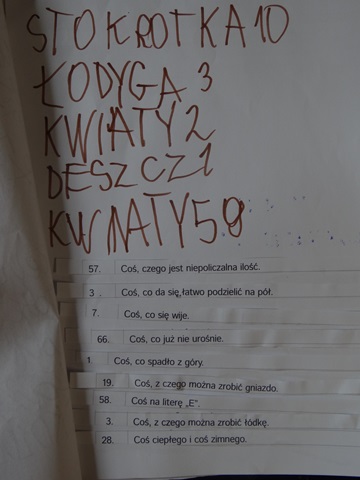 STOKROTKA 10
ŁODYGA 3
KWIATY 2
DESZCZ 1
KWNATY 58
57. Coś, czego jest niepoliczalna ilość.
3. Coś, co da się łatwo podzielić na pół.
7. Coś, co się wije.
66. Coś, co już nie urośnie.
1 Coś, co spadło z góry.
19. Coś, z czego można zrobić gniazdo.
58. Coś na literę „E”.
3. Coś, z czego można zrobić łódkę.
28. Coś ciepłego i coś zimnego.